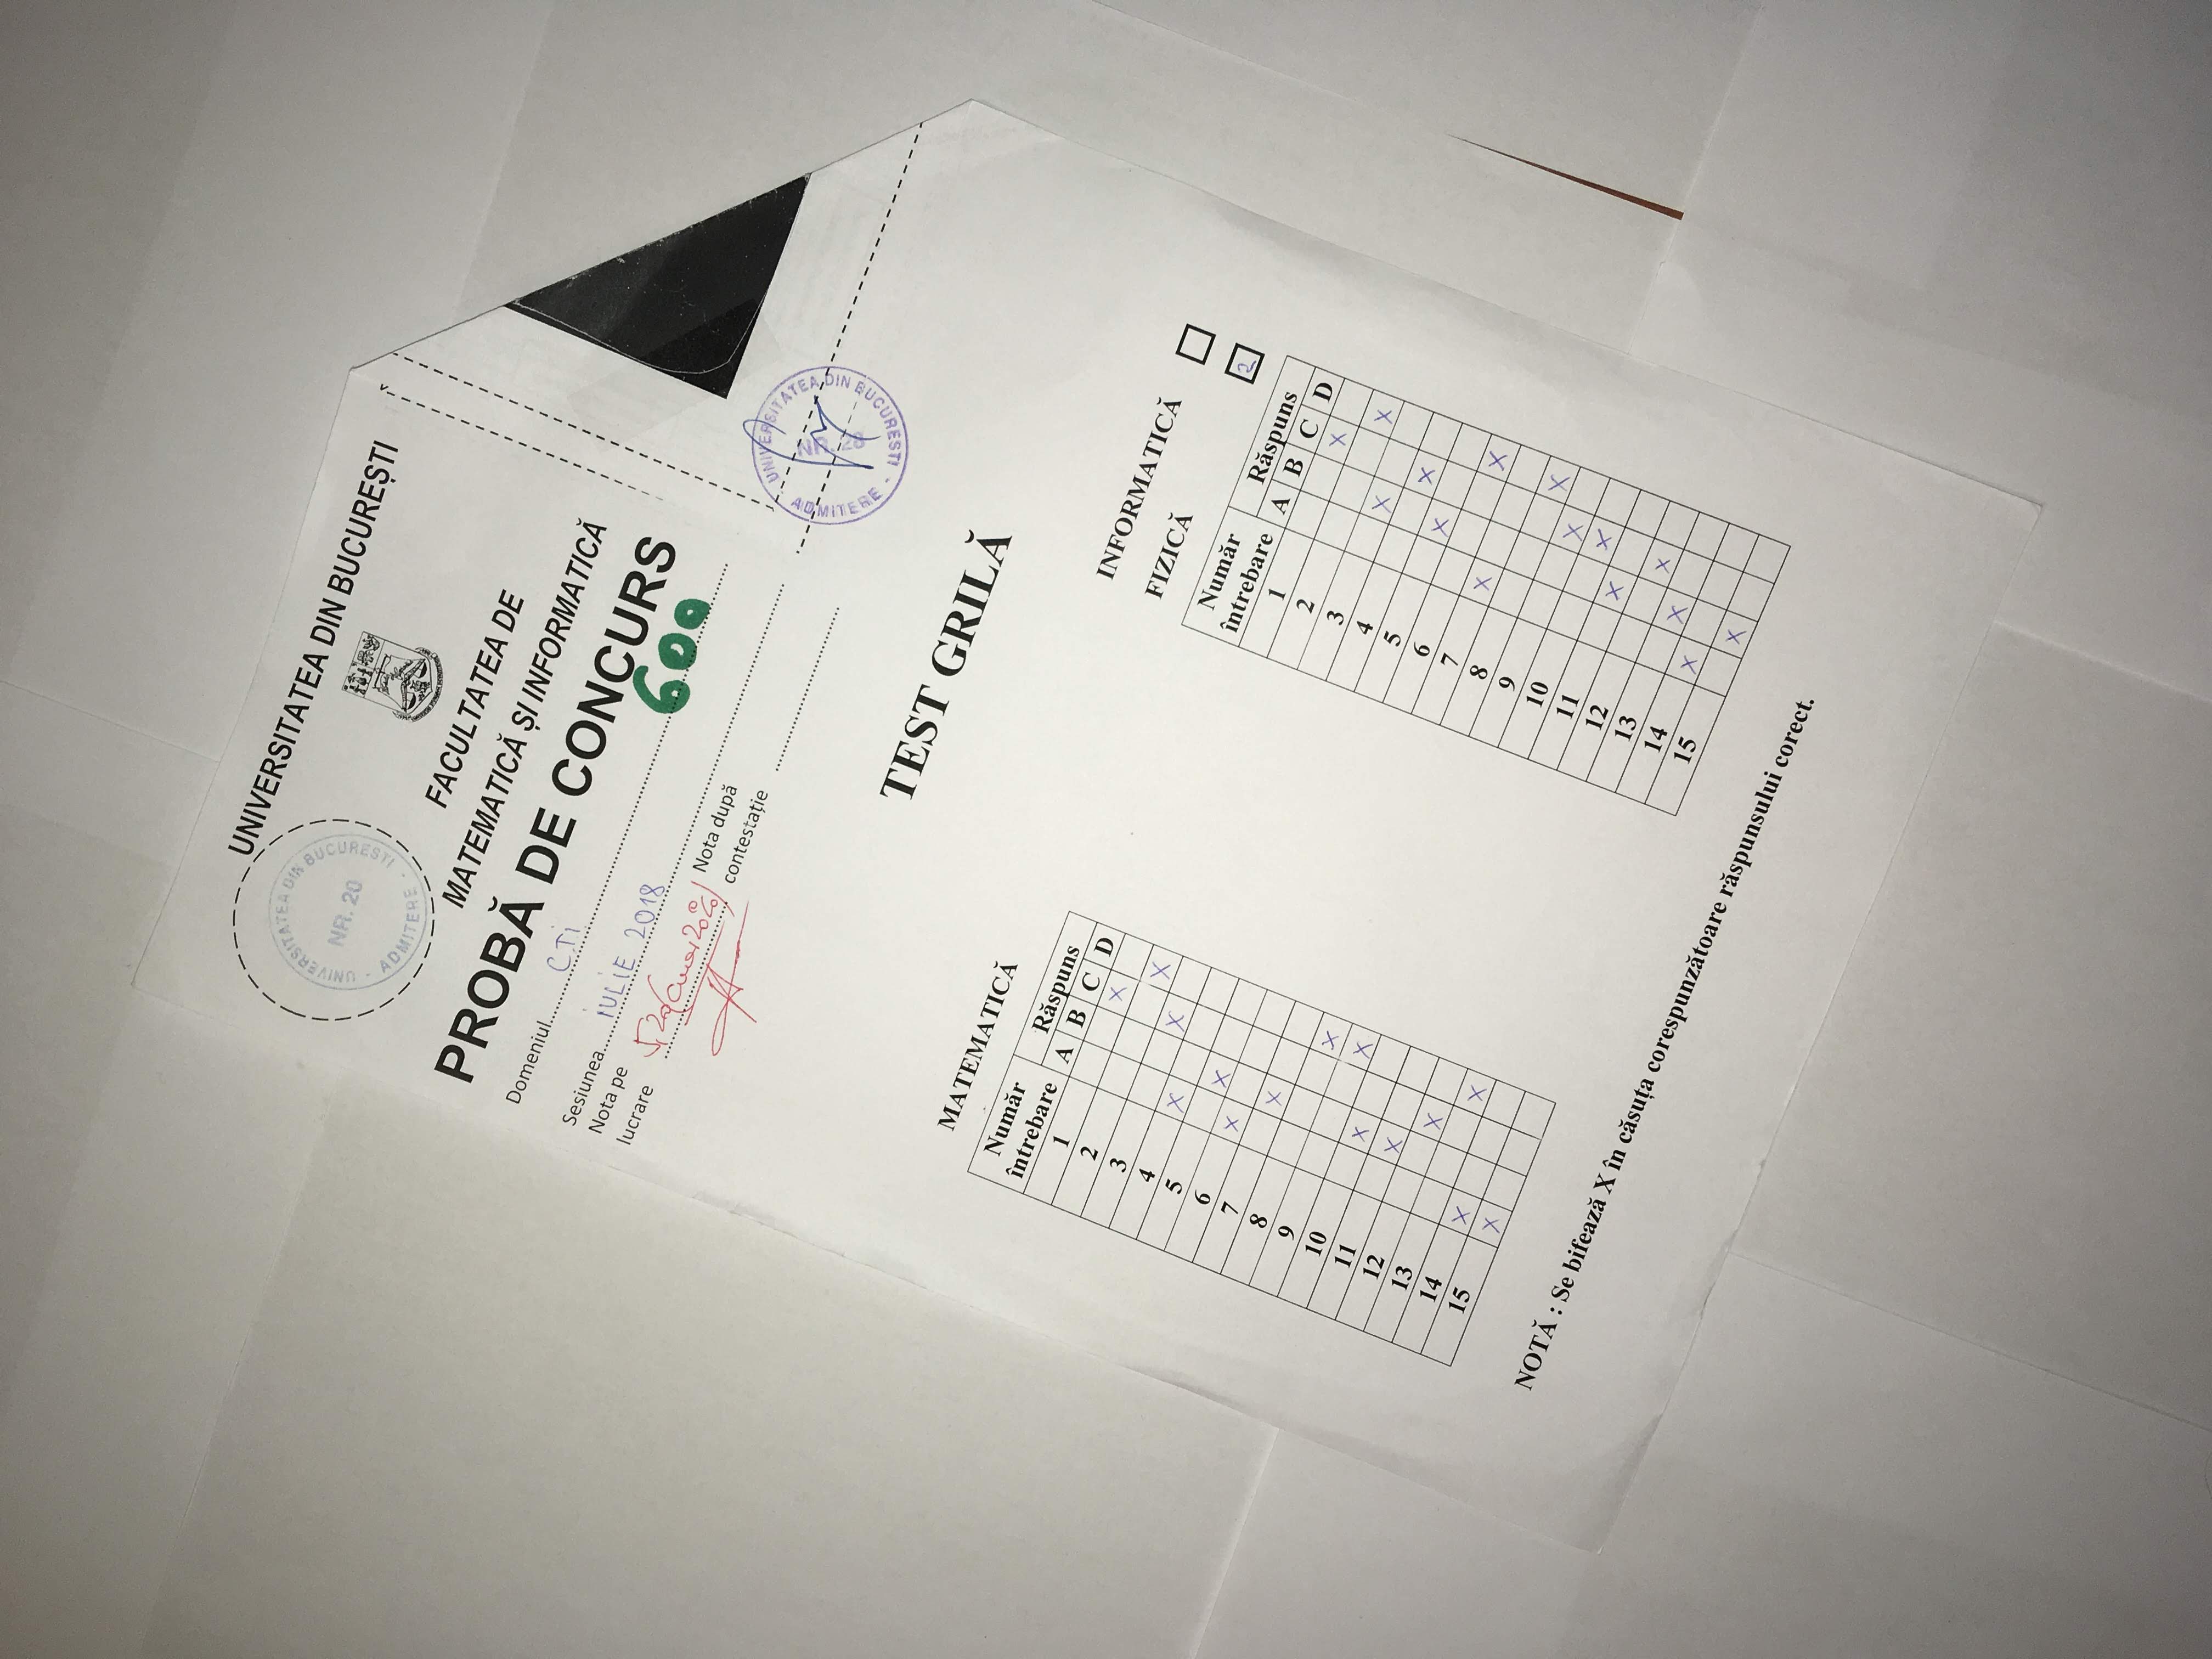 UNIVERSITATEA DIN BUCUREȘTI
UNIVERSITATEA DIN BUCURESTI
NR. 20
- ADMITERE -
FACULTATEA DE
MATEMATICĂ ȘI INFORMATICĂ
PROBĂ DE CONCURS
Domeniul CTi
600
Sesiunea IULIE 2018
Nota pe
lucrare
5,20
Nota după
contestație
UNIVERSITATEA DIN BUCURESTI
ADMITERE -
TEST GRILĂ
MATEMATICĂ
Număr
întrebare
Răspuns
A B C D
1 X
2 X
3 X
4 X
5 X
6 X
7 X
8 X
9 X
10 X
11 X
12 X
13 X
14 X
15 X
INFORMATICĂ
FIZICĂ 2
Număr
întrebare
Răspuns
A B C D
1 X
2 X
3 X
4 X
5 X
6 X
7 X
8 X
9 X
10 X
11 X
12 X
13 X
14 X
15 X
NOTĂ : Se bifează X în căsuța corespunzătoare răspunsului corect.